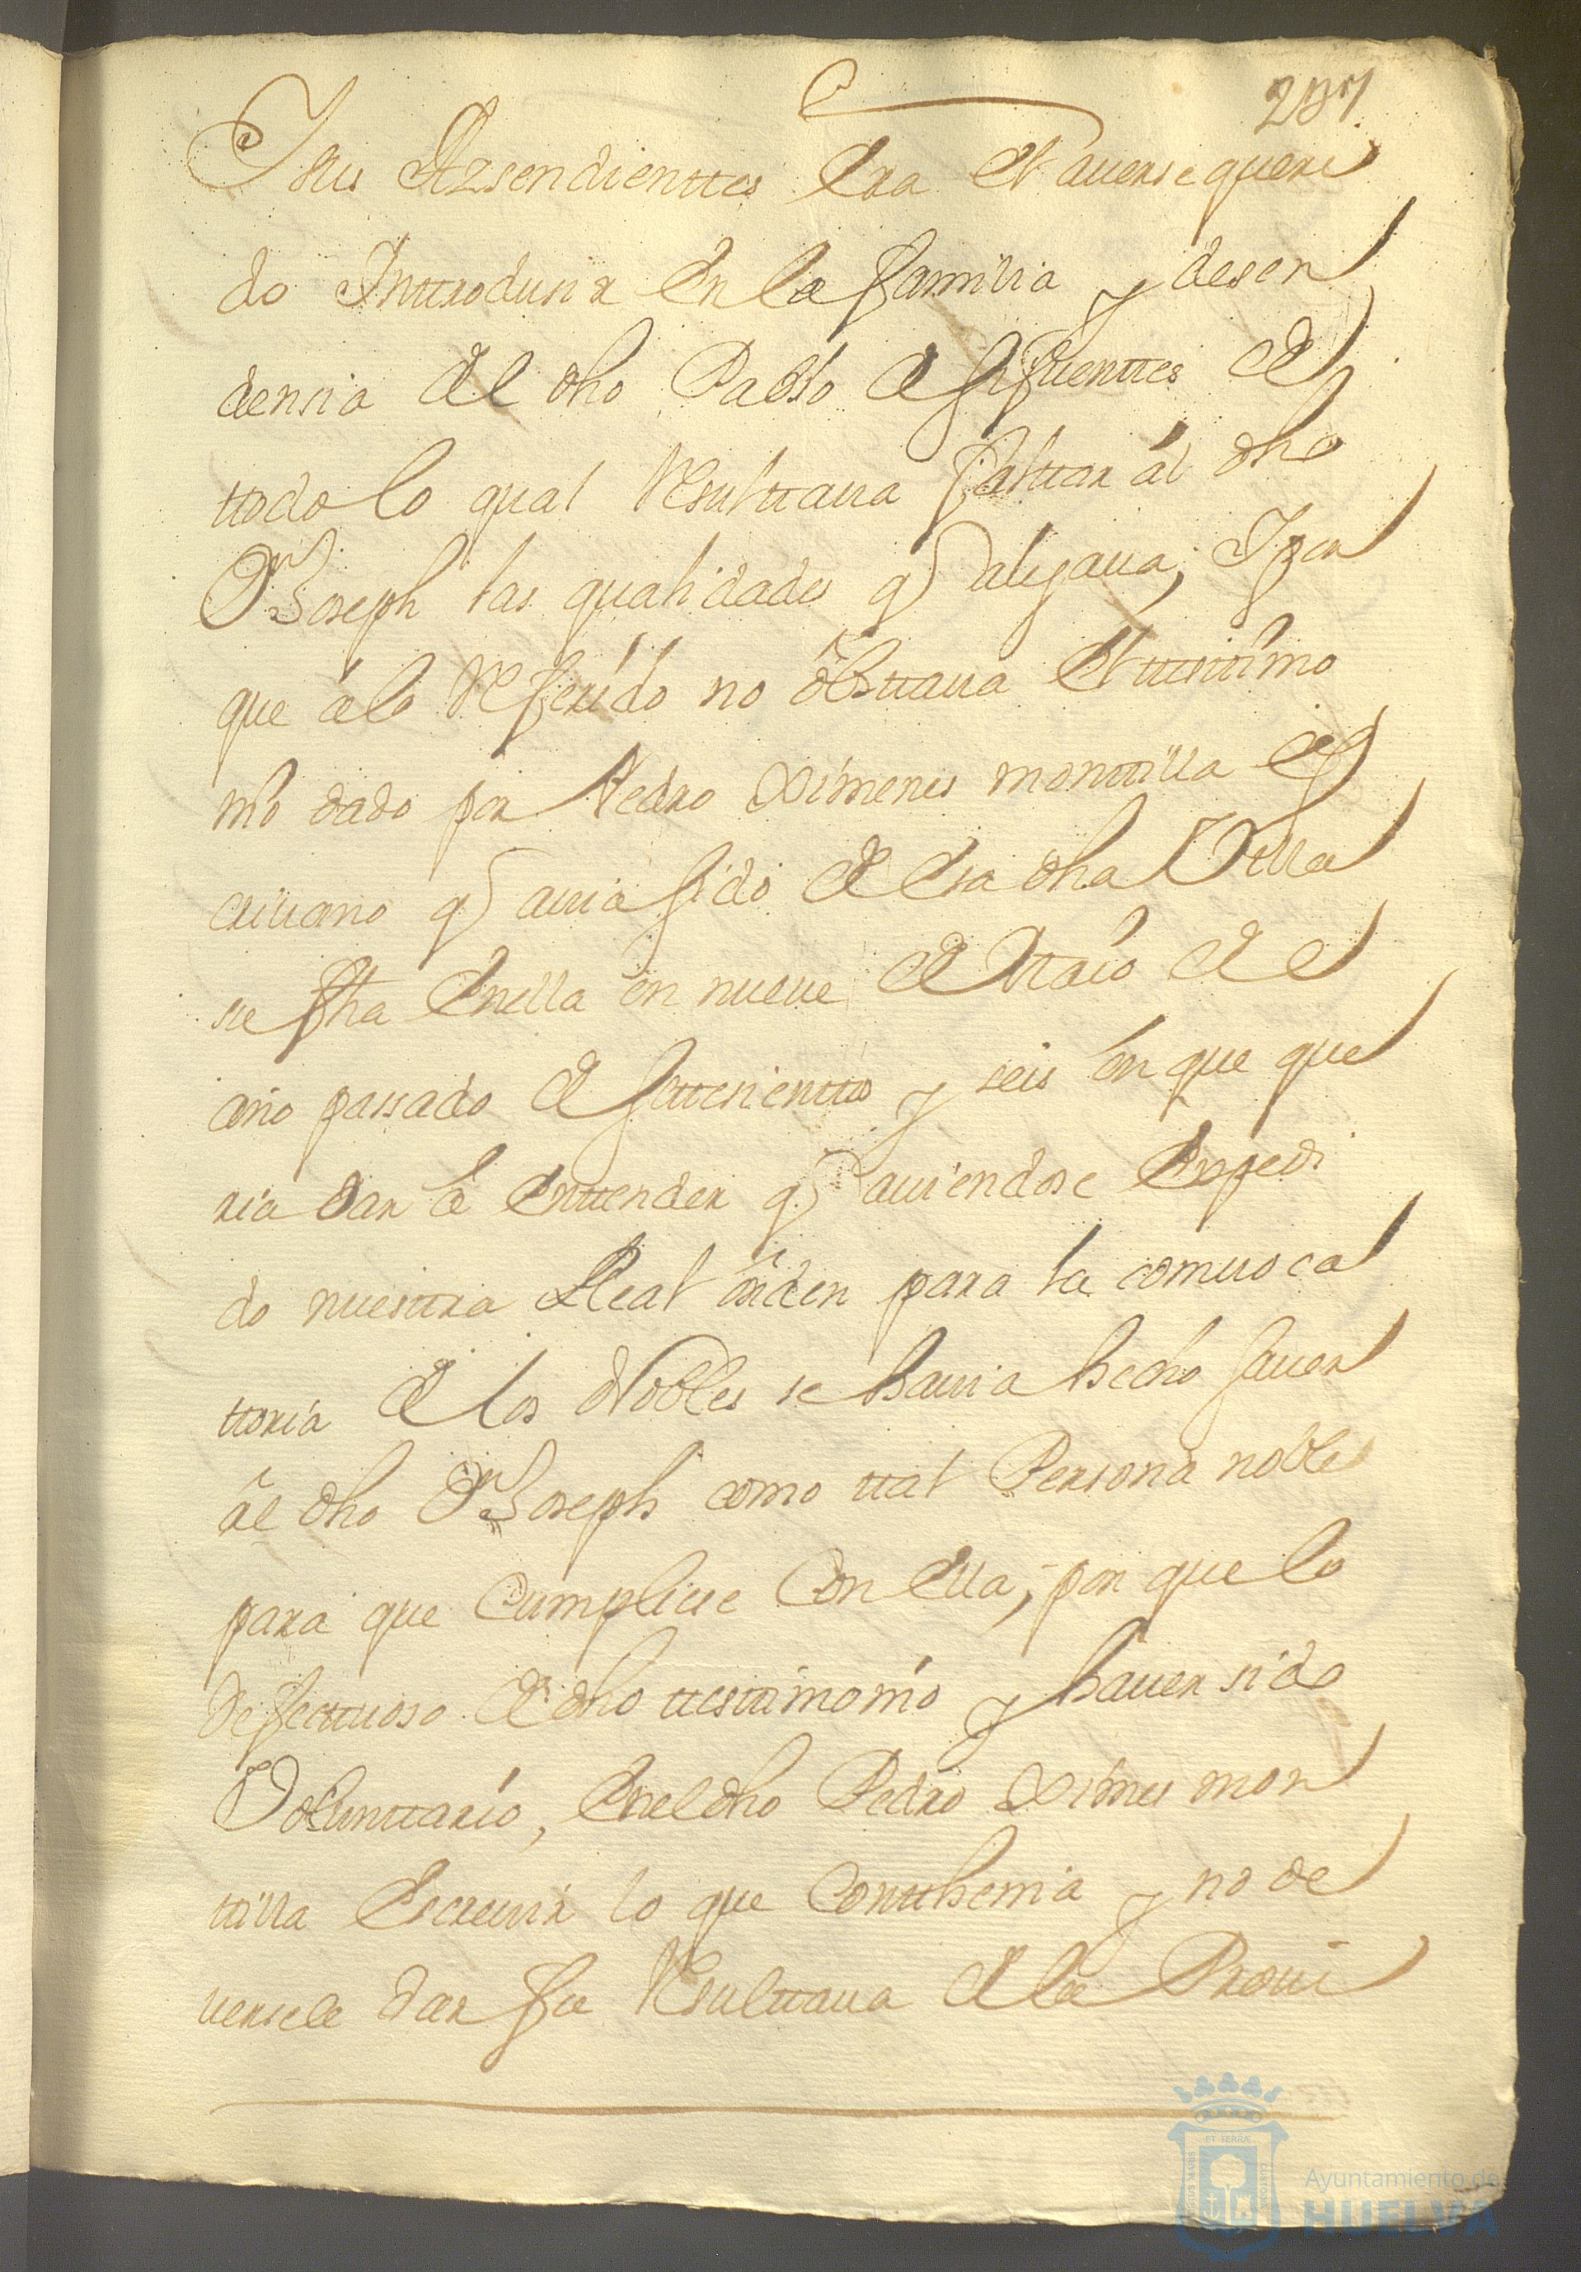 237
Y sus Azsendienttes Era El auerse queri
do Inttrodusir En la familia y desen
densia del dho Pablo de sifuenttes de
ttodo lo qual Resulttaua falttar ál dho
Dn Joseph las qualidades q alegaua, Y por
que á lo Referido no obsttaua El ttesttimo
nio dado por Pedro Ximenes monttilla Es
criuano q auia sido de Esa dha Villa
su fha En ella en nueue de Maio de el
año passado de settesienttos y seis en que que
ria dar á Enttender q auiendose Expedi
do nuesttra Real orden para la comuoca
ttoria de los Nobles se hauia hecho sauer
ál dho Dn Joseph como ttal Persona noble
para que Cumpliese Con Ella, por que lo
defecttuoso de dho ttesttimonio y hauer sido
Voluntario, En el dho Pedro Ximes mon
ttilla Escreuir lo que Contthenia y no de
uersele dar fee Resulttaua de la Proui
Ayuntamiento de
HUELVA